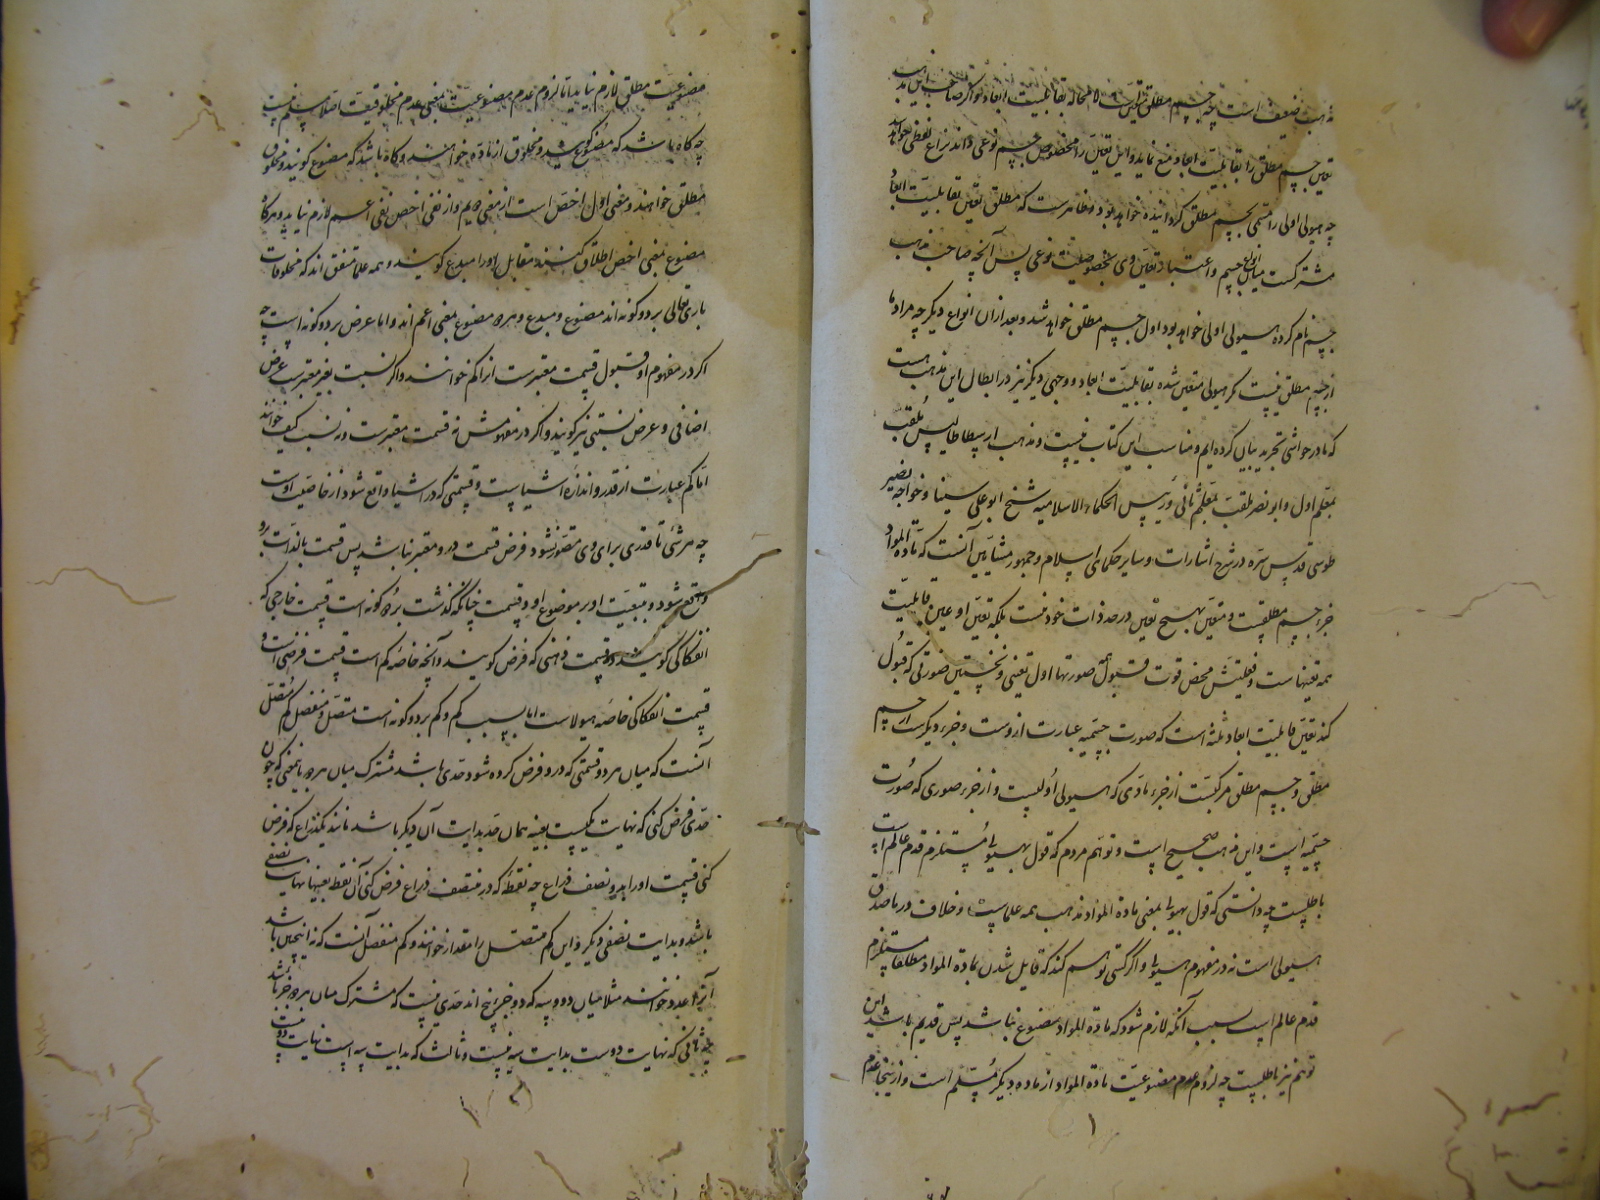 مذهب ضعیف است چه جسم مطلق نیست لا محاله بقابلیت ابعاد و اگر صاحب این مذهب
تعین جسم مطلق را بقابلیت ابعاد منع نماید و این تعین را مخصوص جسم نوعی داند نزاع لفظی خواهد
چه هیولی اولی را مسمی بجسم مطلق گردانیده خواهد بود و ظاهرست که مطلق تعین بقابلیت ابعاد
مشترکست میان انواع جسم و اعتبار تعین وی بخصوصیت نوعی پس آنچه صاحب مذهب
جسم نام کرده هیولی اولی خواهد بود اول جسم مطلق خواهد شد و بعد ازان انواع دیگر چه مراد ما
از جسم مطلق نیست مگر هیولی متعین شده بقابلیت ابعاد و وجهی دیگر نیز در ابطال این مذهب هست
که ما در حواشی تجرید بیان کرده ایم و مناسب این کتاب نیست و مذهب ارسطاطالیس ملقب
بمعلم اول و ابو نصر ملقب بمعلم ثانی و رئیس الحکماء الاسلامیه شیخ ابو علی سینا و خواجه نصیر
طوسی قدس سره در شرح اشارات و سایر حکمای اسلام و جمهور مشایین آنست که مادة المواد
جزء جسم مطلقست و متعین بهیچ تعین در حد ذات خود نیست بلکه تعین او عین قابلیت
همه تعینهاست و فعلیتش محض قوت قبول همه صورتها اول تعینی و نخستین صورتی که قبول
کند تعین قابلیت ابعاد ثلثه است که صورت جسمیه عبارت ازوست و جزء دیگرست از جسم
مطلق و جسم مطلق مرکبست از جزء مادی که هیولی اولیست و از جزء صوری که صورت
جسمیه است و این مذهب صحیح است و توهم مردم که قول بهیولی مستلزم قدم عالم است
باطلست چه دانستی که قول بهیولی بمعنی مادة المواد مذهب همه علماست و خلاف در ما صدق
هیولی است نه در مفهوم هیولی و اگر کسی توهم کند که قایل شدن بمادة المواد مطلقا مستلزم
قدم عالم است بسبب آنکه لازم شود که مادة المواد مصنوع نباشد پس قدیم باشد این
توهم نیز باطلست چه لزوم عدم مصنوعیت مادة المواد از ماده دیگر مسلم است و ازینجا عدم
مصنوعیت مطلق لازم نیاید اما لزوم عدم مصنوعیت بمعنی عدم مخلوقیت اصلا مسلم نیست
چه گاه باشد که مصنوع گویند و مخلوق از ماده خواهند و گاه باشد که مصنوع گویند و مخلوق
مطلق خواهند و معنی اول اخص است از معنی دویم و از نفی اخص نفی اعم لازم نیاید و هرگاه
مصنوع بمعنی اخص اطلاق کنند مقابل او را مبدع گویند و همه علما متفق اند که مخلوقات
باری تعالی بر دو گونه اند مصنوع و مبدع و هر دو مصنوع بمعنی اعم اند و اما عرض بر دو گونه است چه
اگر در مفهوم او قبول قسمت معتبرست انرا کم خوانند و اگر نسبت بغیر معتبرست عرض
اضافی و عرض نسبتی نیز گویند و اگر در مفهومش نه قسمت معتبرست و نه نسبت کیف خوانند
اما کم عبارت از قدر و اندازه اشیاست و قسمتی که در اشیا واقع شود از خاصیت اوست
چه هر شی تا قدری برای وی متصور نشود فرض قسمت درو معتبر نباشد پس قسمت بالذات برو
واقع شود و بتبعیت او بر موضوع او و قسمت چنانکه گذشت بر دو گونه است قسمت خارجی که
انفکاکی گویند و قسمت ذهنی که فرض گویند و آنچه خاصه کم است قسمت فرضی است و
قسمت انفکاکی خاصه هیولاست اما بسبب کم و کم بر دو گونه است متصل و منفصل کم متصل
آنست که میان هر دو قسمتی که درو فرض کرده شود حدی باشد مشترک میان هر دو بمعنی که چون
حدی فرض کنی که نهایت یکیست بعینه همان حد بدایت آن دیگر باشد مانند یکذراع که فرض
کنی قسمت او را بدو نصف ذراع چه نقطه که در منتصف ذراع فرض کنی آن نقطه بعینها نهایت نصفی
باشد و بدایت نصفی دیگر و این کم متصل را مقدار خوانند و کم منفصل آنست که نه اینچنین باشد
آنرا عدد خوانند مثلا میان دو و سه که دو جزء پنج اند حدی نیست که مشترک میان هر دو جزء باشد
چه ثانی که نهایت دوست بدایت سه نیست و ثالث که بدایت سه است نهایت دو نیست